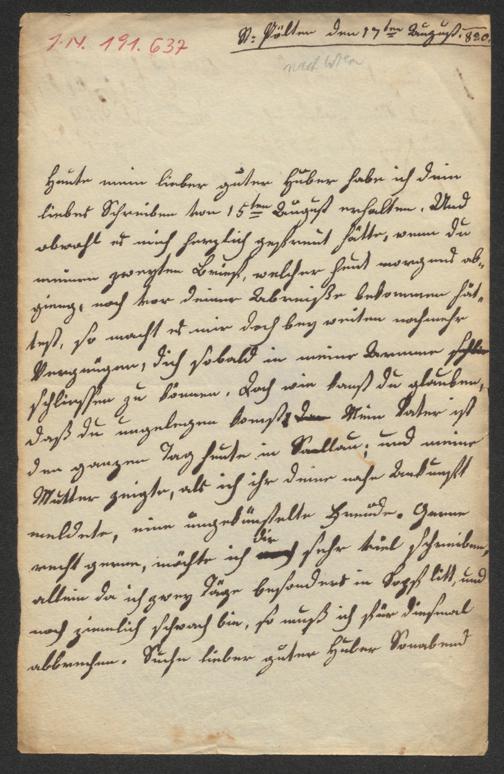 I. N. 191.637
St: Pölten den 17ten August. 820.
nach Wien
Heute mein lieber guter Huber habe ich dein
liebes Schreiben von 15ten August erhalten. Und
obwohl es mich herzlich gefreut hätte, wenn du
meinen zweyten Brief, welcher heut morgends ab-
gieng, noch vor deiner Abreise bekommen hät-
test, so macht es mir doch bey weiten noch mehr
Vergnügen, dich sobald in meine Arme
schliessen zu können. Doch wie kanst du glauben,
daß du ungelegen komst? Mein Vater ist
den ganzen Tag heute in und meine
Mutter zeigte, als ich ihr deine nahe Ankunft
meldete, eine ungekünstelte Freude. Gerne
recht gerne, möchte ich dir sehr viel schreiben,
allein da ich zwey Täge besonders in Kopf litt, und
noch ziemlich schwach bin, so muß ich für diesmal
abbrechen. Suche lieber guter Huber Sonabend